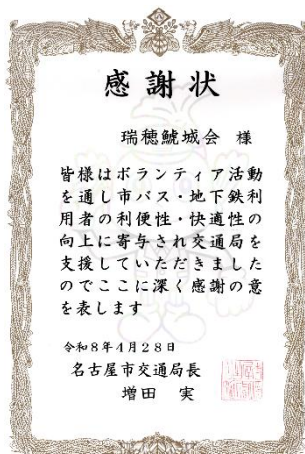 感謝状
瑞穂鯱城会 様
皆様はボランティア活動
を通し市バス・地下鉄利
用者の利便性・快適性の
向上に寄与され交通局を
支援していただきました
のでここに深く感謝の意
を表します
令和8年4月28日
名古屋市交通局長
増田 実